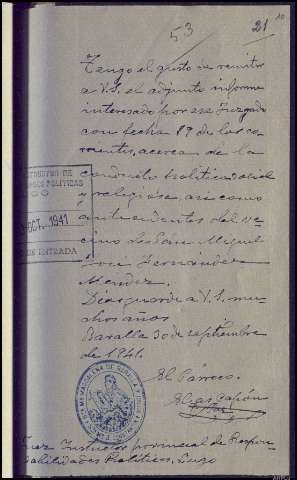 53 / 21
Tengo el gusto de remitir
a V.S. el adjunto informe
interesado por ese Juzgado
con fecha 19 de los co-
rrientes, acerca de la
conducta política, social
y religiosa, así como
antecedentes del ve-
cino de Miguel
José Fernández
Mendez.
Dios guarde a V.S. mu-
chos años
Baralla 30 de septiembre
de 1941.
El Párroco,
POLITICAS
OCT. 1941
DE ENTRADA
Juez Instructor provincial de Respon-
sabilidades Políticas, Lugo